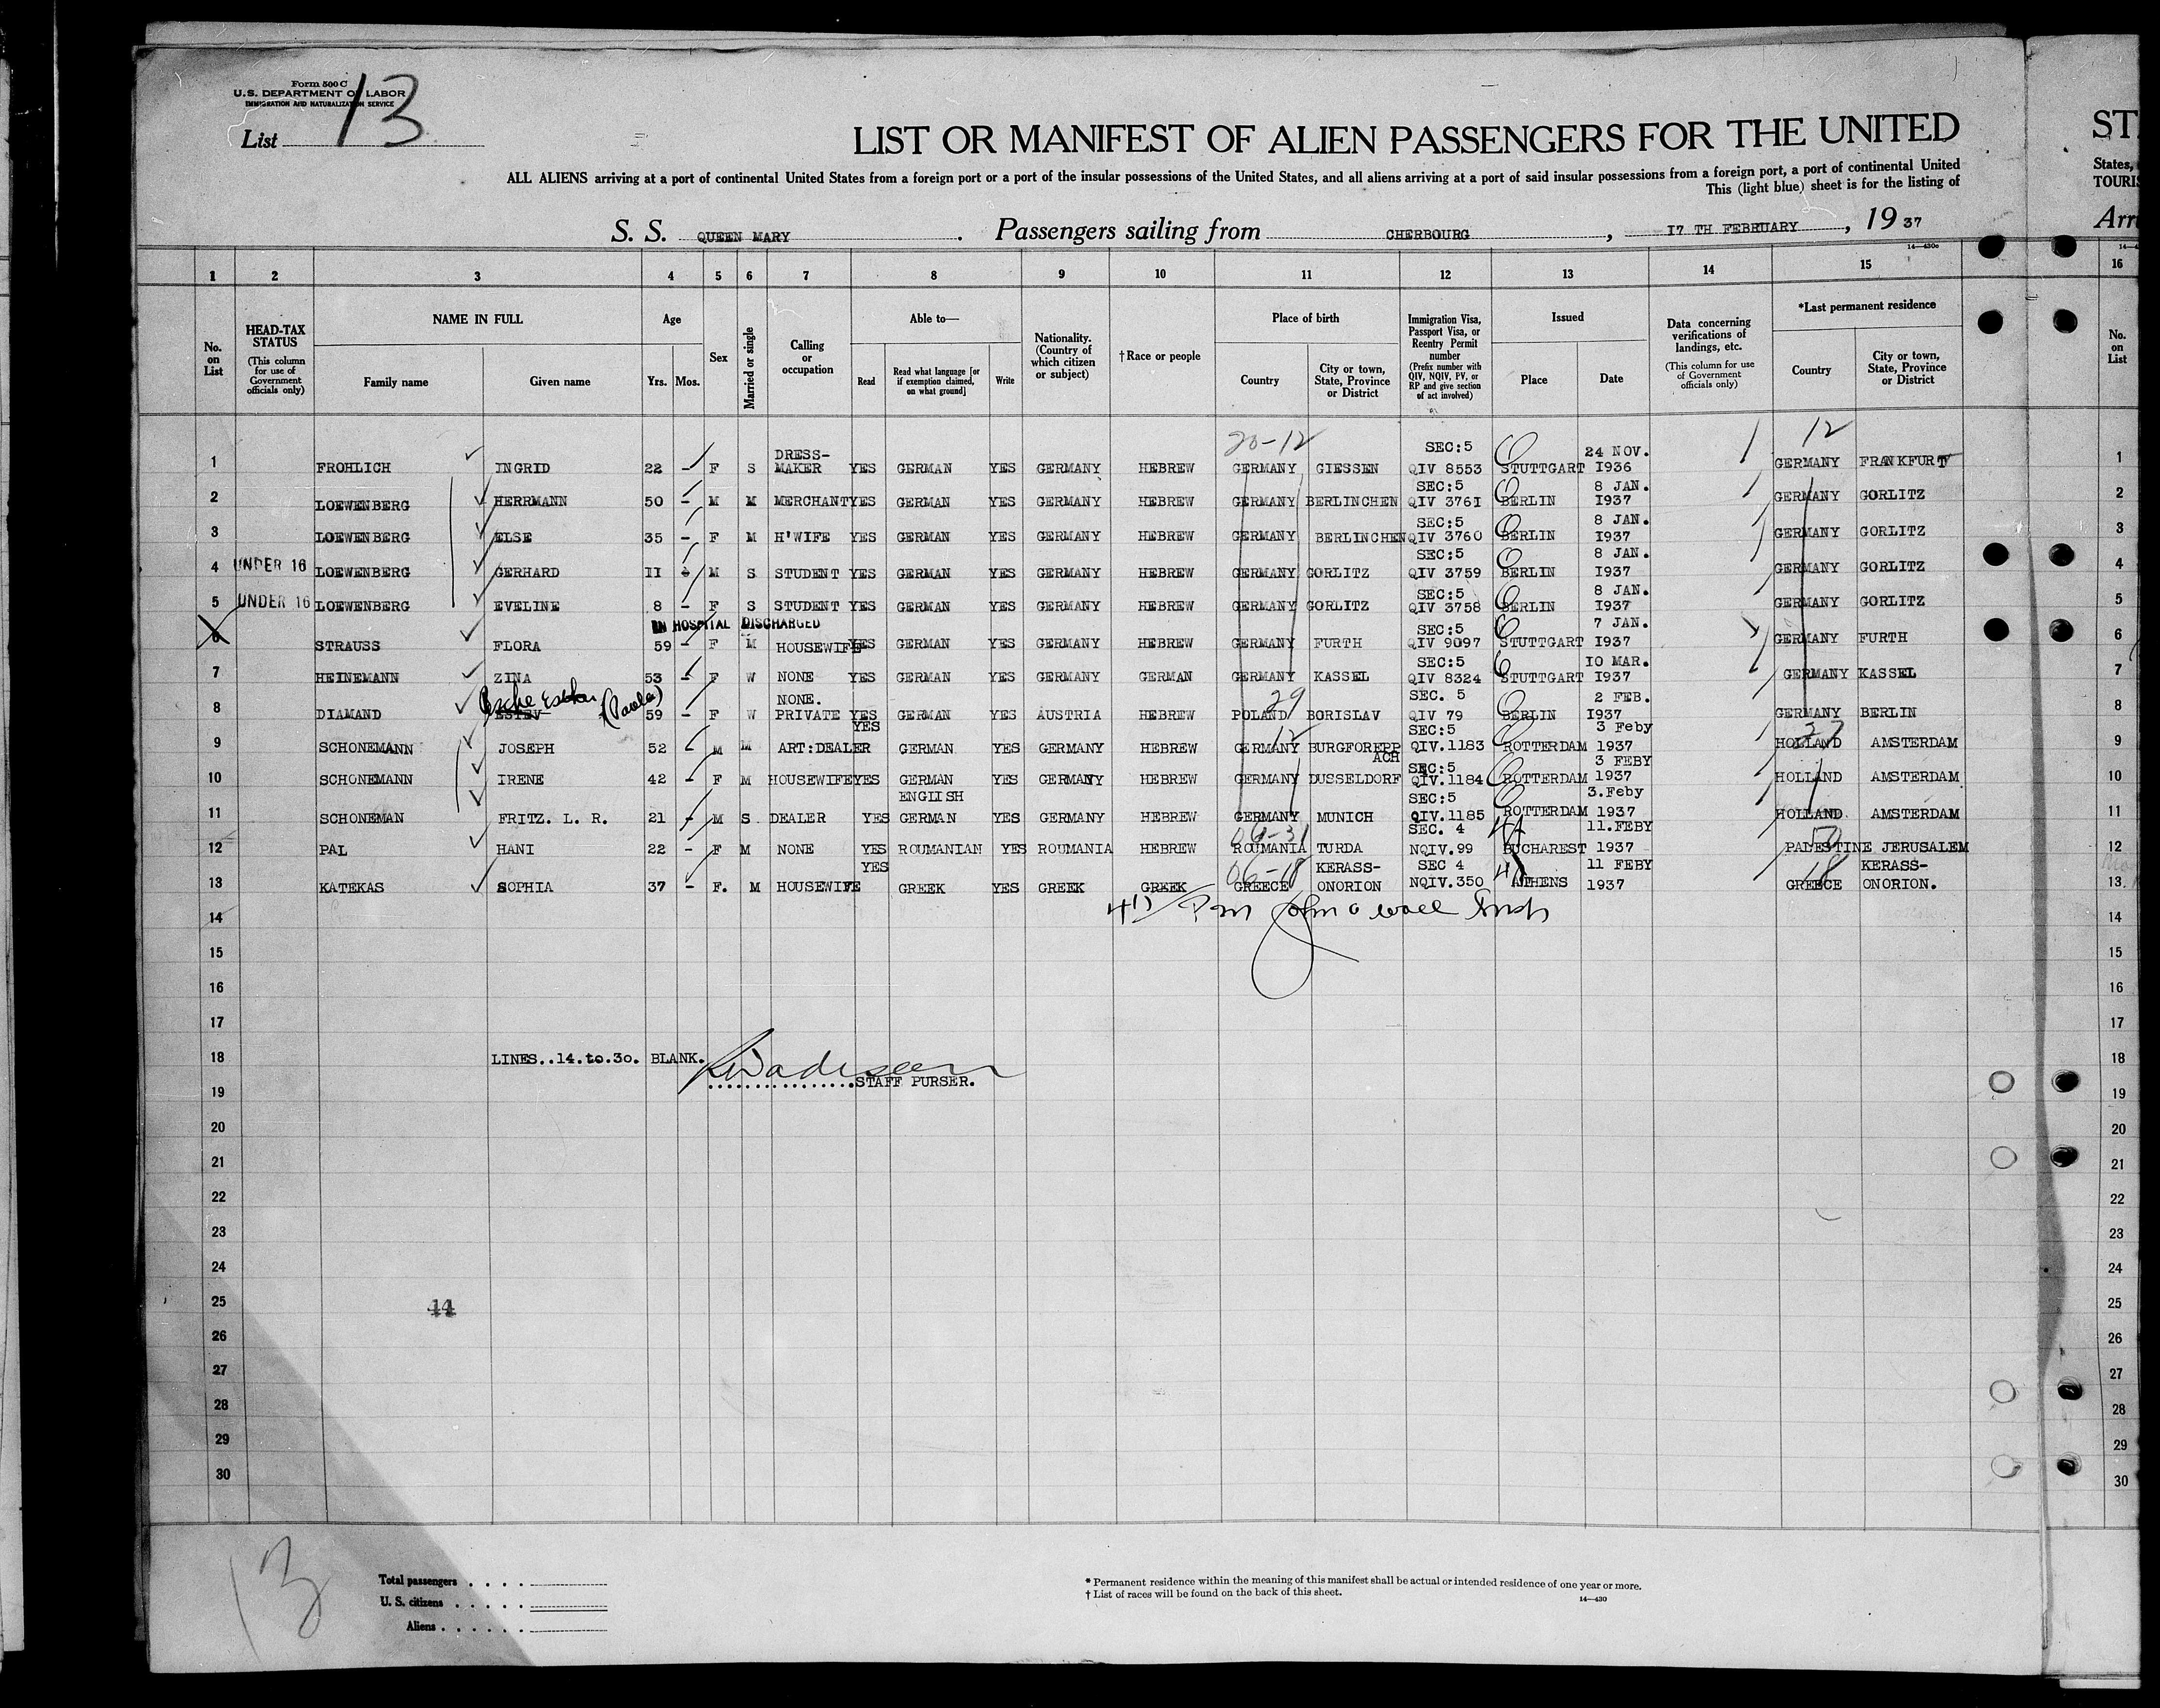 Form 500 C
U.S. DEPARTMENT OF LABOR
IMMIGRATION AND NATURALIZATION SERVICE
List 13
LIST OR MANIFEST OF ALIEN PASSENGERS FOR THE UNITED
ST
ALL ALIENS arriving at a port of continental United States from a foreign port or a port of the insular possessions of the United States, and all aliens arriving at a port of said insular possessions from a foreign port, a port of continental United
States,
This (light blue) sheet is for the listing of
TOURIS
S. S. QUEEN MARY . Passengers sailing from CHERBOURG , 17 TH FEBRUARY , 19 37
Arri
14—430c
1 2 3 4 5 6 7 8 9 10 11 12 13 14 15 16
No. on List
HEAD-TAX STATUS (This column for use of Government officials only)
NAME IN FULL Family name Given name
Age Yrs. Mos.
Sex
Married or single
Calling or occupation
Able to— Read Read what language [or if exemption claimed, on what ground] Write
Nationality. (Country of which citizen or subject)
†Race or people
Place of birth Country City or town, State, Province or District
Immigration Visa, Passport Visa, or Reentry Permit number (Prefix number with QIV, NQIV, PV, or RP and give section of act involved)
Issued Place Date
Data concerning verifications of landings, etc. (This column for use of Government officials only)
*Last permanent residence Country City or town, State, Province or District
No. on List
20-12 12
1 FROHLICH INGRID 22 - F S DRESS-MAKER YES GERMAN YES GERMANY HEBREW GERMANY GIESSEN SEC:5 QIV 8553 STUTTGART 24 NOV. 1936 GERMANY FRANKFURT 1
2 LOEWENBERG HERRMANN 50 - M M MERCHANT YES GERMAN YES GERMANY HEBREW GERMANY BERLINCHEN SEC:5 QIV 3761 BERLIN 8 JAN. 1937 GERMANY GORLITZ 2
3 LOEWENBERG ELSE 35 - F M H'WIFE YES GERMAN YES GERMANY HEBREW GERMANY BERLINCHEN SEC:5 QIV 3760 BERLIN 8 JAN. 1937 GERMANY GORLITZ 3
4 UNDER 16 LOEWENBERG GERHARD 11 - M S STUDENT YES GERMAN YES GERMANY HEBREW GERMANY GORLITZ SEC:5 QIV 3759 BERLIN 8 JAN. 1937 GERMANY GORLITZ 4
5 UNDER 16 LOEWENBERG EVELINE 8 - F S STUDENT YES GERMAN YES GERMANY HEBREW GERMANY GORLITZ SEC:5 QIV 3758 BERLIN 8 JAN. 1937 GERMANY GORLITZ 5
IN HOSPITAL DISCHARGED
6 STRAUSS FLORA 59 - F M HOUSEWIFE YES GERMAN YES GERMANY HEBREW GERMANY FURTH SEC:5 QIV 9097 STUTTGART 7 JAN. 1937 GERMANY FURTH 6
7 HEINEMANN ZINA 53 - F W NONE YES GERMAN YES GERMANY GERMAN GERMANY KASSEL SEC:5 QIV 8324 STUTTGART 10 MAR. 1937 GERMANY KASSEL 7
(Paula) 29
8 DIAMAND ESTEV 59 - F W NONE. PRIVATE YES GERMAN YES AUSTRIA HEBREW POLAND BORISLAV SEC. 5 QIV 79 BERLIN 2 FEB. 1937 GERMANY BERLIN 8
9 SCHONEMANN JOSEPH 52 M M ART:DEALER YES GERMAN YES GERMANY HEBREW GERMANY BURGFOREPPACH SEC:5 QIV.1183 ROTTERDAM 3 Feby 1937 HOLLAND AMSTERDAM 9
10 SCHONEMANN IRENE 42 - F M HOUSEWIFE YES GERMAN YES GERMANY HEBREW GERMANY DUSSELDORF SEC:5 QIV.1184 ROTTERDAM 3 FEBY 1937 HOLLAND AMSTERDAM 10
11 SCHONEMAN FRITZ. L. R. 21 - M S DEALER YES ENGLISH GERMAN YES GERMANY HEBREW GERMANY MUNICH SEC:5 QIV.1185 ROTTERDAM 3.Feby 1937 HOLLAND AMSTERDAM 11
06-31
12 PAL HANI 22 - F M NONE YES ROUMANIAN YES ROUMANIA HEBREW ROUMANIA TURDA SEC. 4 NQIV.99 BUCHAREST 11.FEBY 1937 PALESTINE JERUSALEM 12
06-18 18
13 KATEKAS SOPHIA 37 - F. M HOUSEWIFE YES GREEK YES GREEK GREEK GREECE KERASS-ONORION SEC 4 NQIV.350 ATHENS 11 FEBY 1937 GREECE KERASS-ONORION. 13
14 14
15 15
16 16
17 17
18 LINES..14.to.30. BLANK. 18
19 STAFF PURSER. 19
20 20
21 21
22 22
23 23
24 24
25 44 25
26 26
27 27
28 28
29 29
30 30
13
Total passengers . . . .
U. S. citizens . . . . .
Aliens . . . . . .
* Permanent residence within the meaning of this manifest shall be actual or intended residence of one year or more.
† List of races will be found on the back of this sheet.
14—430